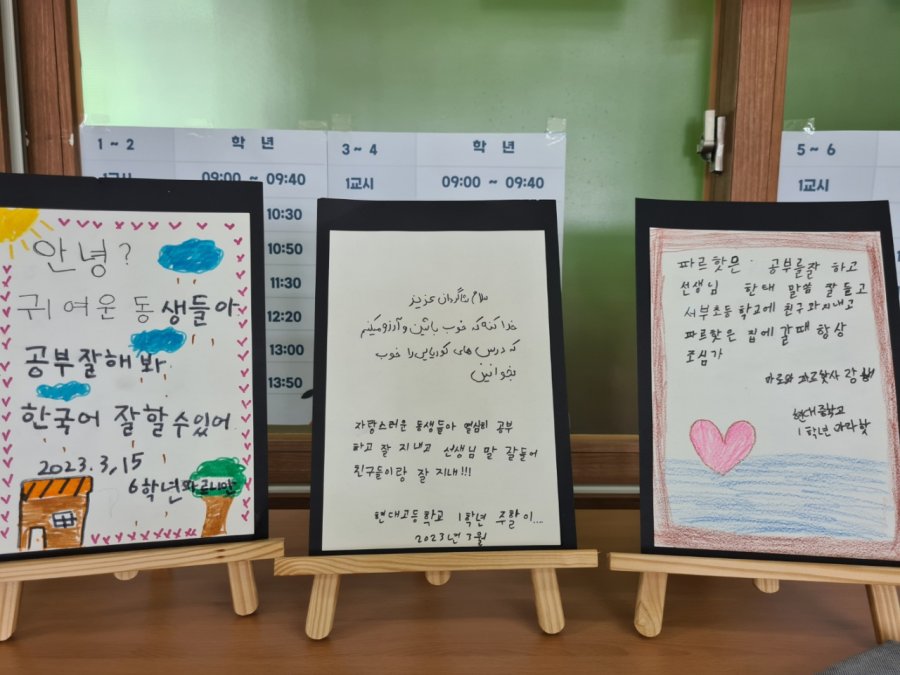 1 ~ 2 학 년
1교시 09:00 ~ 09:40
10:30
10:50
11:30
12:20
13:00
13:50
3 ~ 4 학 년
1교시 09:00 ~ 09:40
5 ~ 6
1교시
안녕?
귀여운 동생들아
공부잘해봐
한국어 잘할수있어
2023.3,15
6학년
سلام شاگردان عزیز
خدا کنه که خوب باشین و آرزو میکنم
که درس های کوریایی را خوب
بخوانین
자랑스러운 동생들아 열심히 공부
하고 잘 지내고 선생님 말 잘들어
친구들이랑 잘 지내!!!
현대고등학교 1학년 주활이...
2023년 3월
파르핫은 공부를잘 하고
선생님 한태 말씀 잘들고
서부초등학교에 친구와지내고
파르핫은 집에 갈때 항상
조심가
현대중학교
1학년